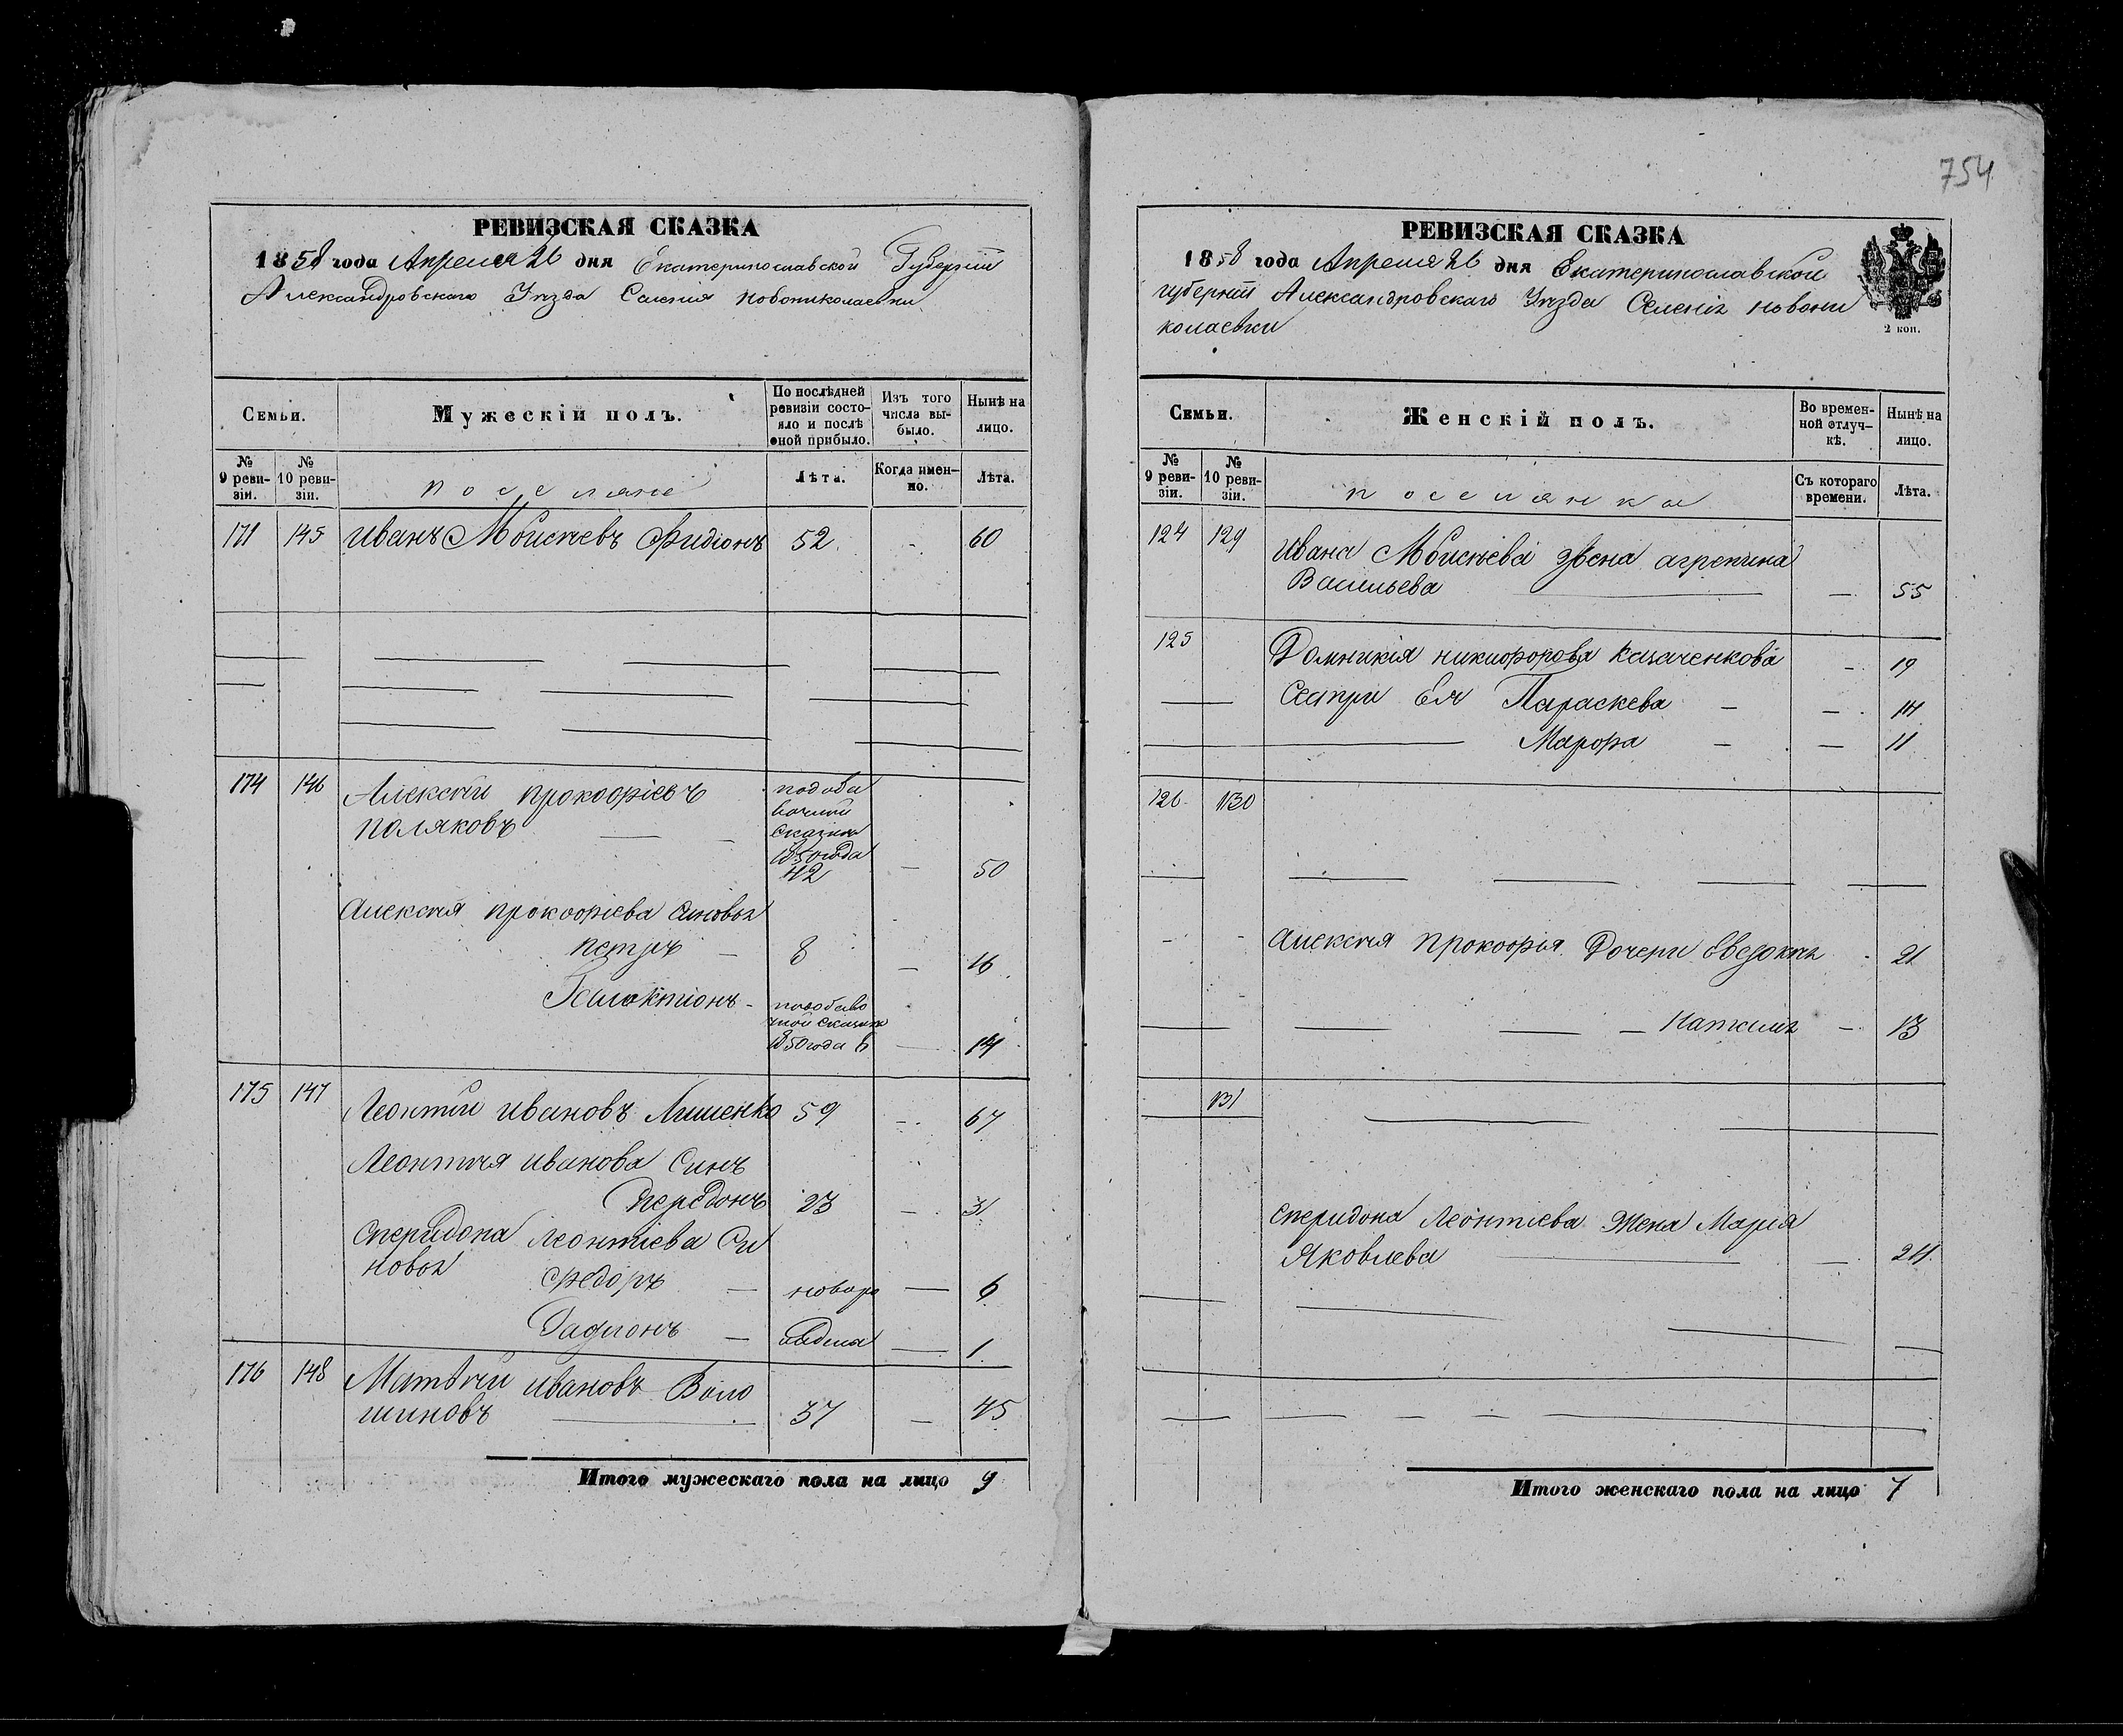 754
РЕВИЗСКАЯ СКАЗКА
1858 года Апреля 26 дня Екатеринославской Губернїи
Александровскаго Уѣзда Селенїя Новониколаевки
Семьи.
Мужескій полъ.
По послѣдней ревизіи состояло и послѣ оной прибыло.
Изъ того числа выбыло.
Нынѣ на лицо.
№ 9 ревизіи.
№ 10 ревизіи.
поселяне
Лѣта.
Когда именно.
Лѣта.
171 145 Иванъ Моисѣевъ Фидіонъ 52 - 60
174 146 Алексѣй прокофіевъ
поляковъ
подоба
вочной
сказки
1850 года
42 — 50
Алексѣя прокофіева синовья
петръ — 8 — 16
Галактіонъ - подобаво
чной сказки
1850 года 6 — 14
175 147 Леонтїй ивановъ Лишенко 59 - 67
Леонтѣя иванова синъ
Сперидонъ 23 — 31
Сперидона леонтіева си
новья
Федоръ — новоро 6
Радионъ — 1
176 148 Матвѣй ивановъ Воло
шиновъ 37 — 45
Итого мужескаго пола на лицо 9
РЕВИЗСКАЯ СКАЗКА
1858 года Апреля 26 дня Екатеринославской
губернїи Александровскаго Уѣзда Селенія новони
колаевки
2 коп.
Семьи.
Женскій полъ.
Во временной отлучкѣ.
Нынѣ на лицо.
№ 9 ревизіи.
№ 10 ревизіи.
поселянки
Съ котораго времени.
Лѣта.
124 129 Ивана Моисѣева жена агрепина
Васильева — 55
125 Домникія никифорова Казаченкова - 19
Сестри Ея Параскева — — 14
Марфа — — 11
126 130
Алексѣя Прокофія Дочери Евдокія - 21
Наталія — 13
131
Сперидона Леонтіева Жена Марія
Яковлева — 24
Итого женскаго пола на лицо 7